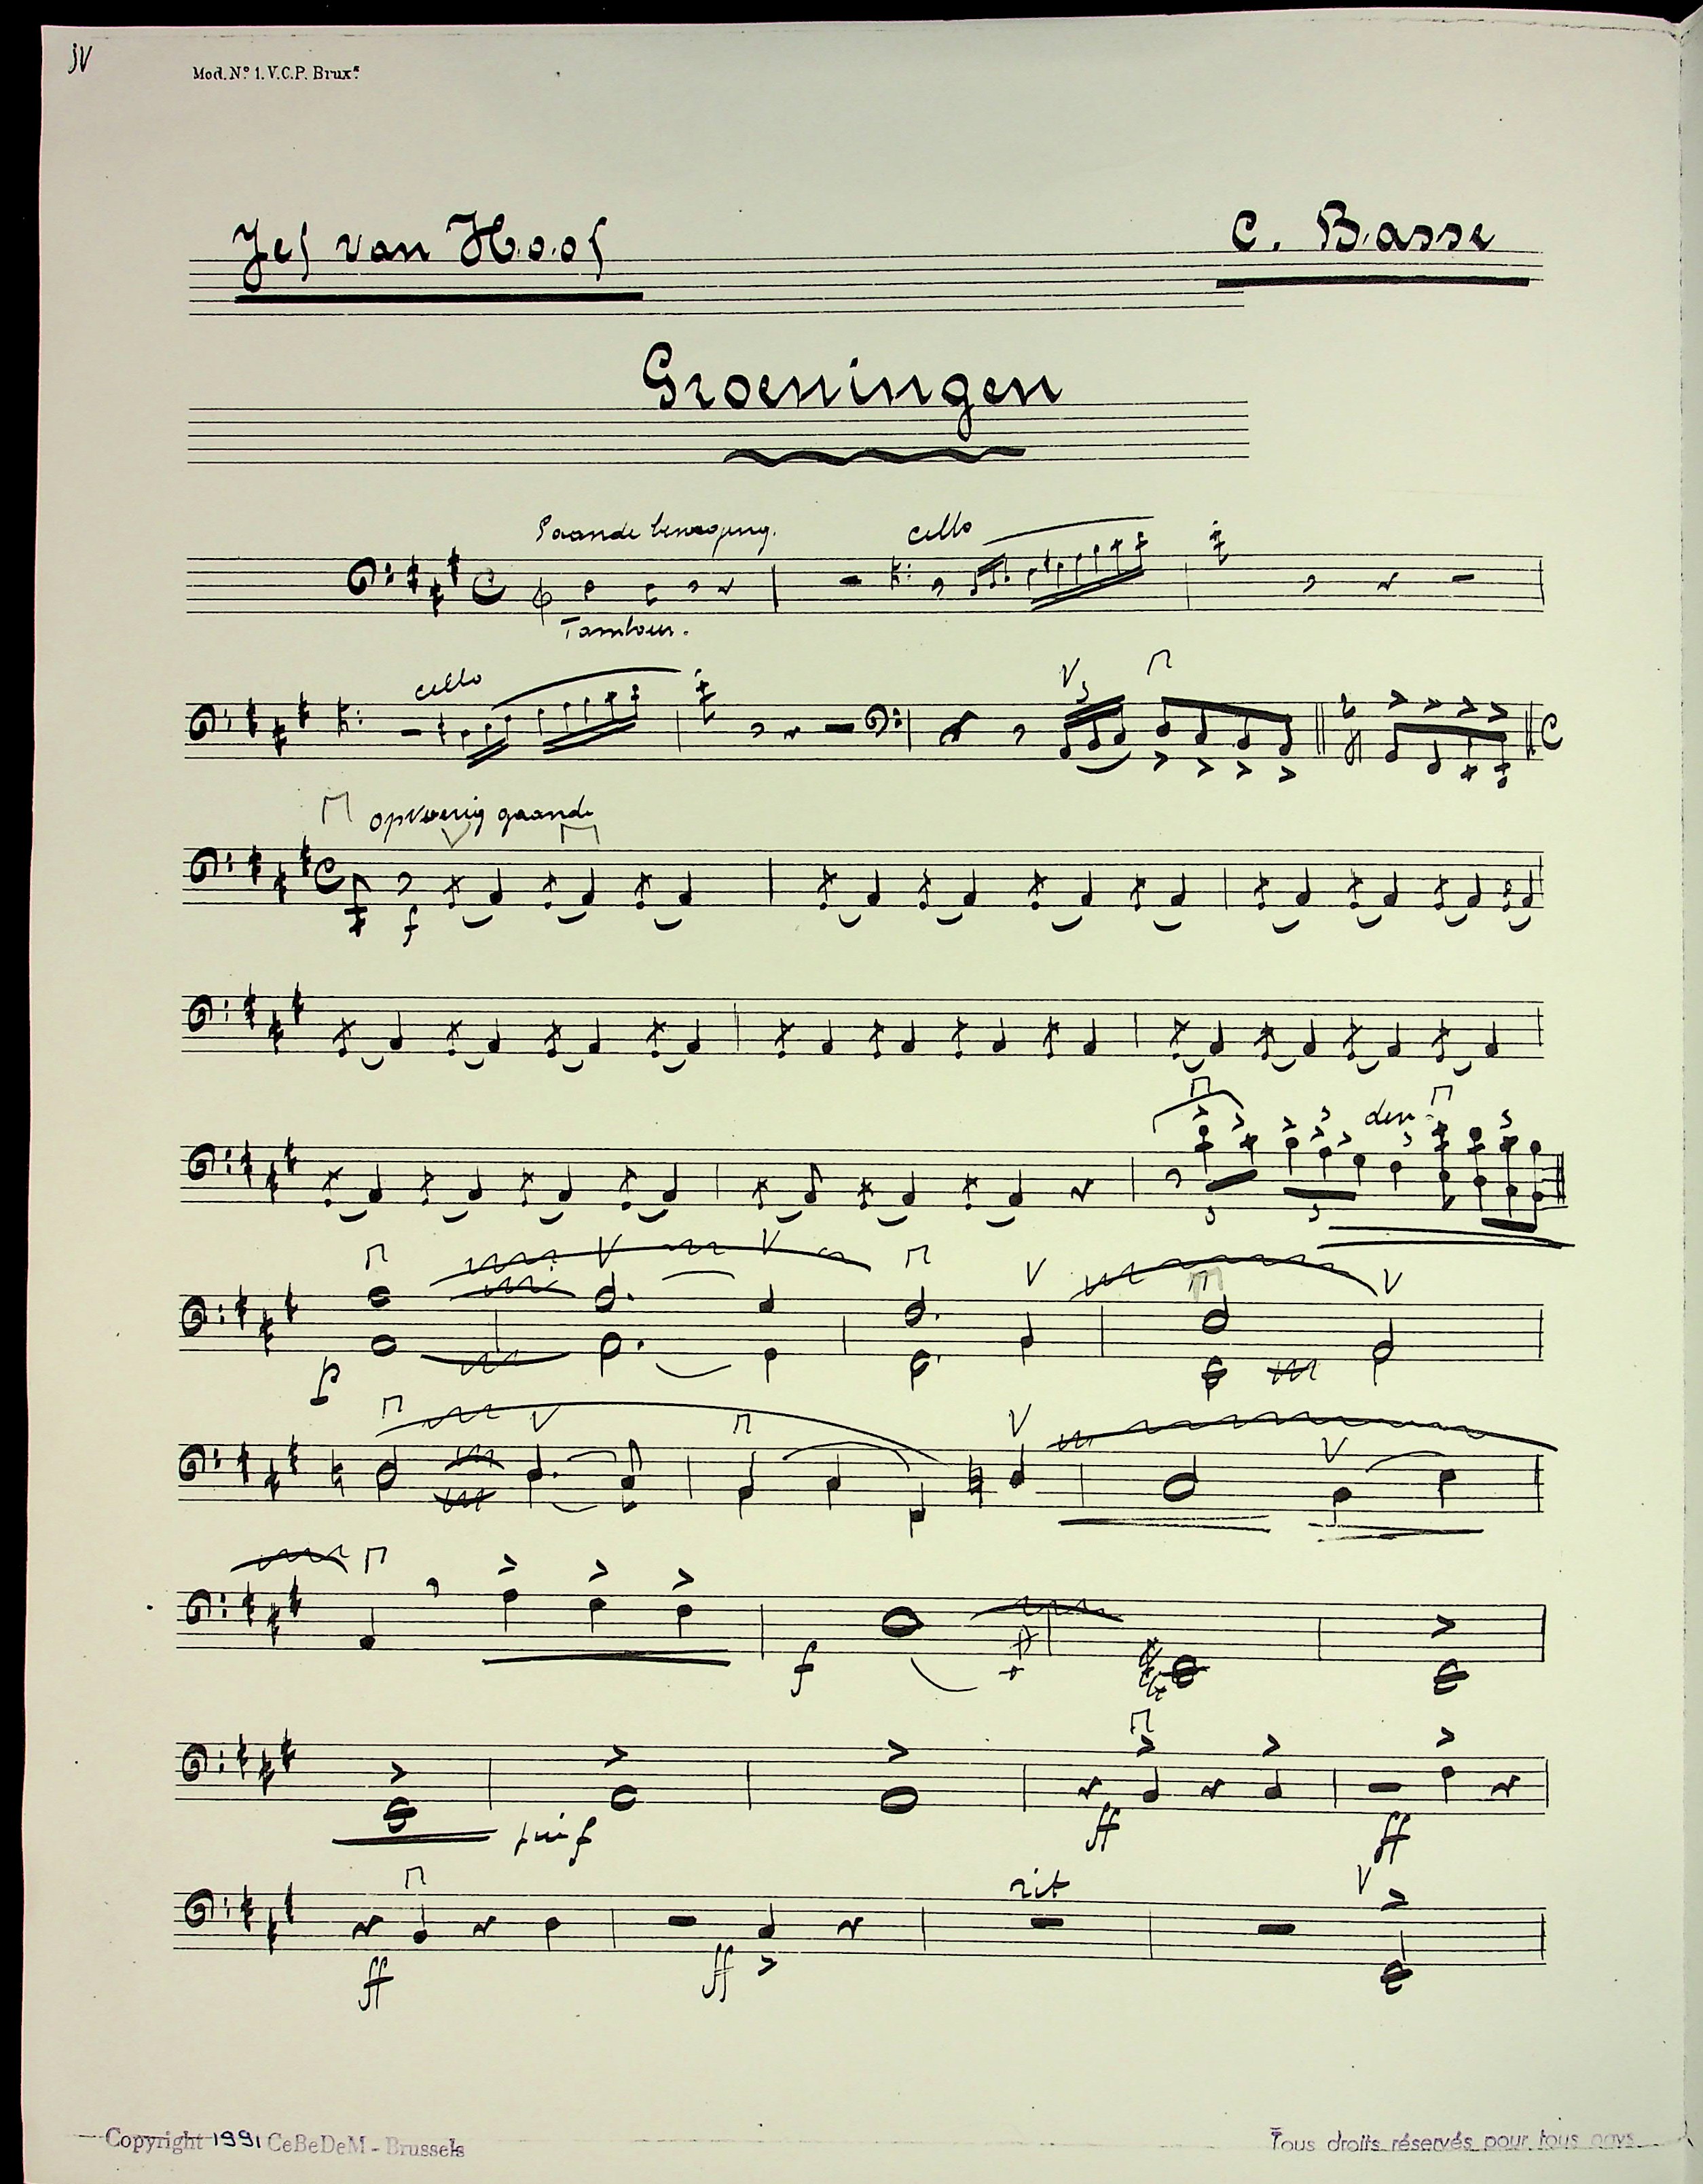 JV
Mod. Nº 1. V.C.P. Brux.
Jef van Hoof
C. Basse
Groeningen
Gaande beweging.
cello
Tambour.
cello
V 3
opvoerig gaande
V
f
3
3 3
V V V V
p
V V V
f
più f
ff
ff
rit
V
ff
ff
Copyright 1991 CeBeDeM - Brussels
Tous droits réservés pour tous pays